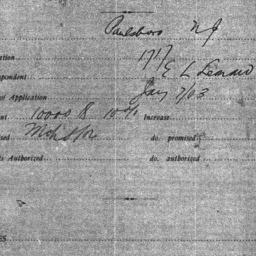 Paulsboro N J
ation 1917
pondent E L Leonard
of Application Jan 7/03
nt 1000 $ 10% Increase
sed do. promised
ls Authorized do. authorized
ES